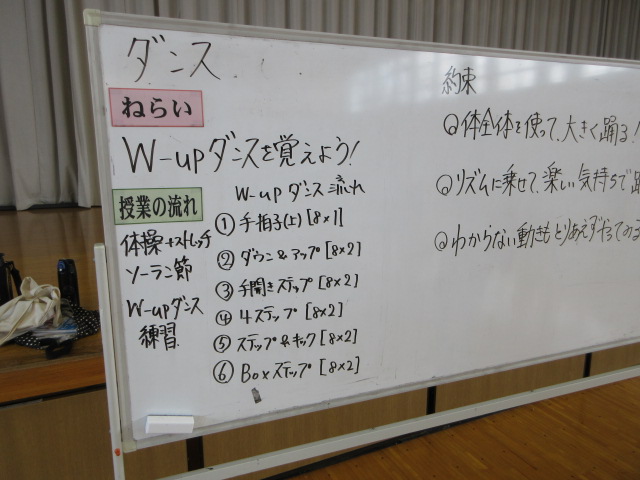 ダンス
ねらい
W-upダンスを覚えよう!
授業の流れ
体操+ストレッチ
ソーラン節
W-upダンス
練習
W-upダンス流れ
① 手拍子(上)[8×1]
② ダウン&アップ[8×2]
③ 手開きステップ[8×2]
④ 4ステップ[8×2]
⑤ ステップ&キック[8×2]
⑥ Boxステップ[8×2]
約束
体全体を使って、大きく踊る!
リズムに乗せて、楽しい気持ちで踊
わからない動きもとりあえずやってみる